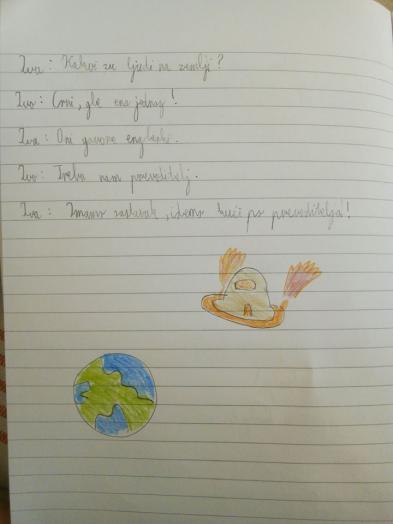 Iva: Kakvi su ljudi na zemlji?
Ivo: Crni, gle eno jednog!
Iva: Oni govore engleski.
Ivo: Treba nam prevoditelj.
Iva: Imamo zastavak, idemo kući po prevoditelja!